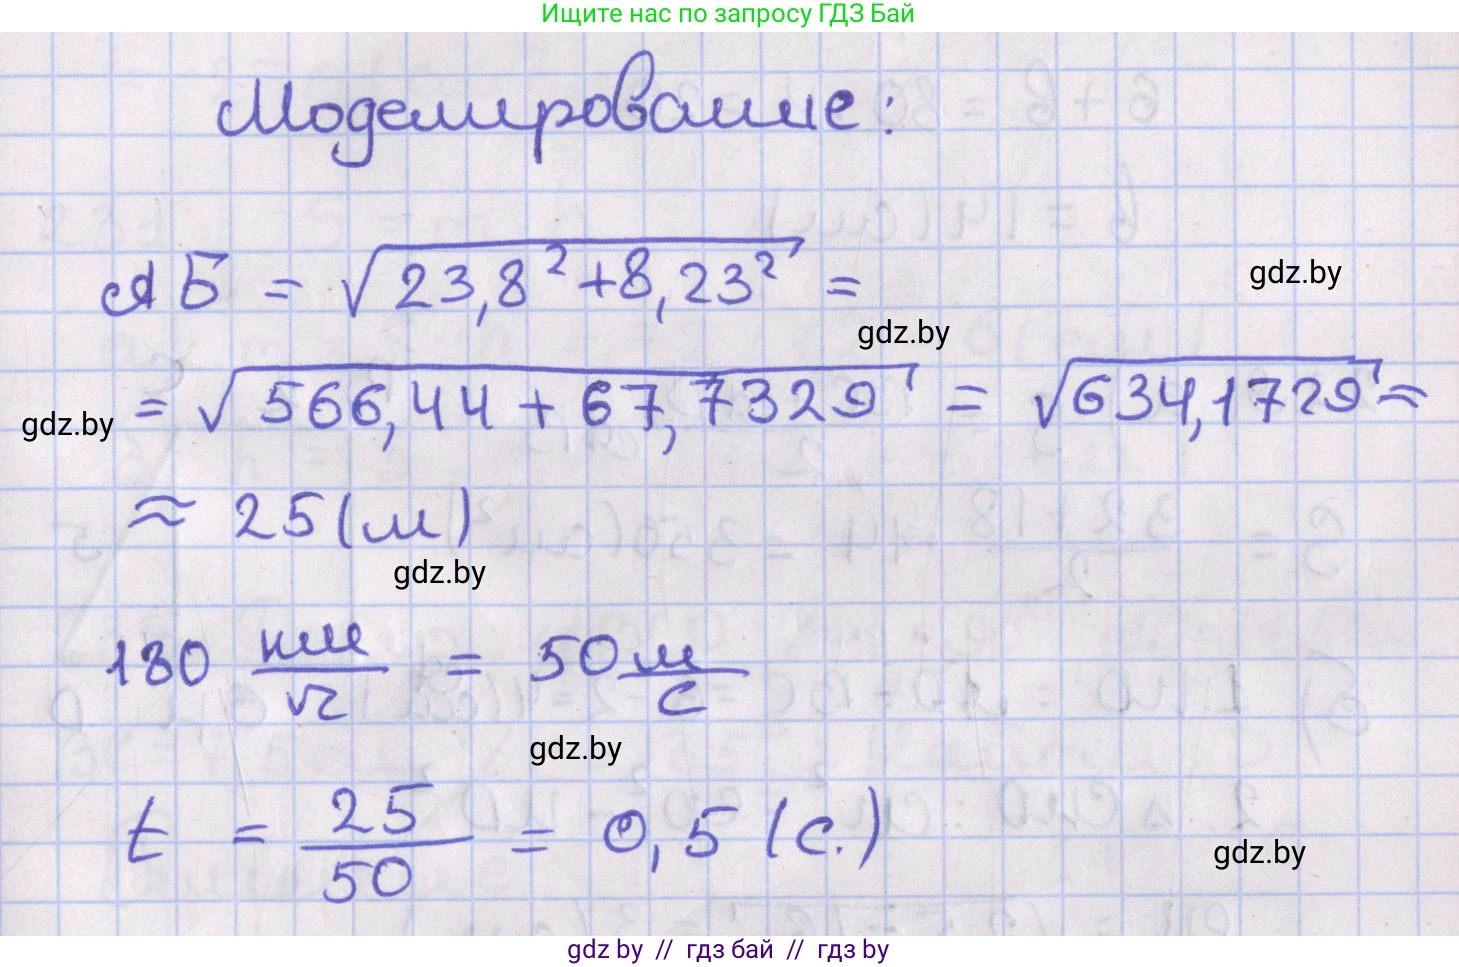 Ищите нас по запросу ГДЗ Бай
Моделирование:
АБ = √(23,8² + 8,23²) =
gdz.by
gdz.by
= √(566,44 + 67,7329) = √(634,1729) ≈
gdz.by
≈ 25 (м)
gdz.by
180 км/ч = 50 м/с
gdz.by
t = 25/50 = 0,5 (с.)
gdz.by
gdz by // гдз бай // гдз by